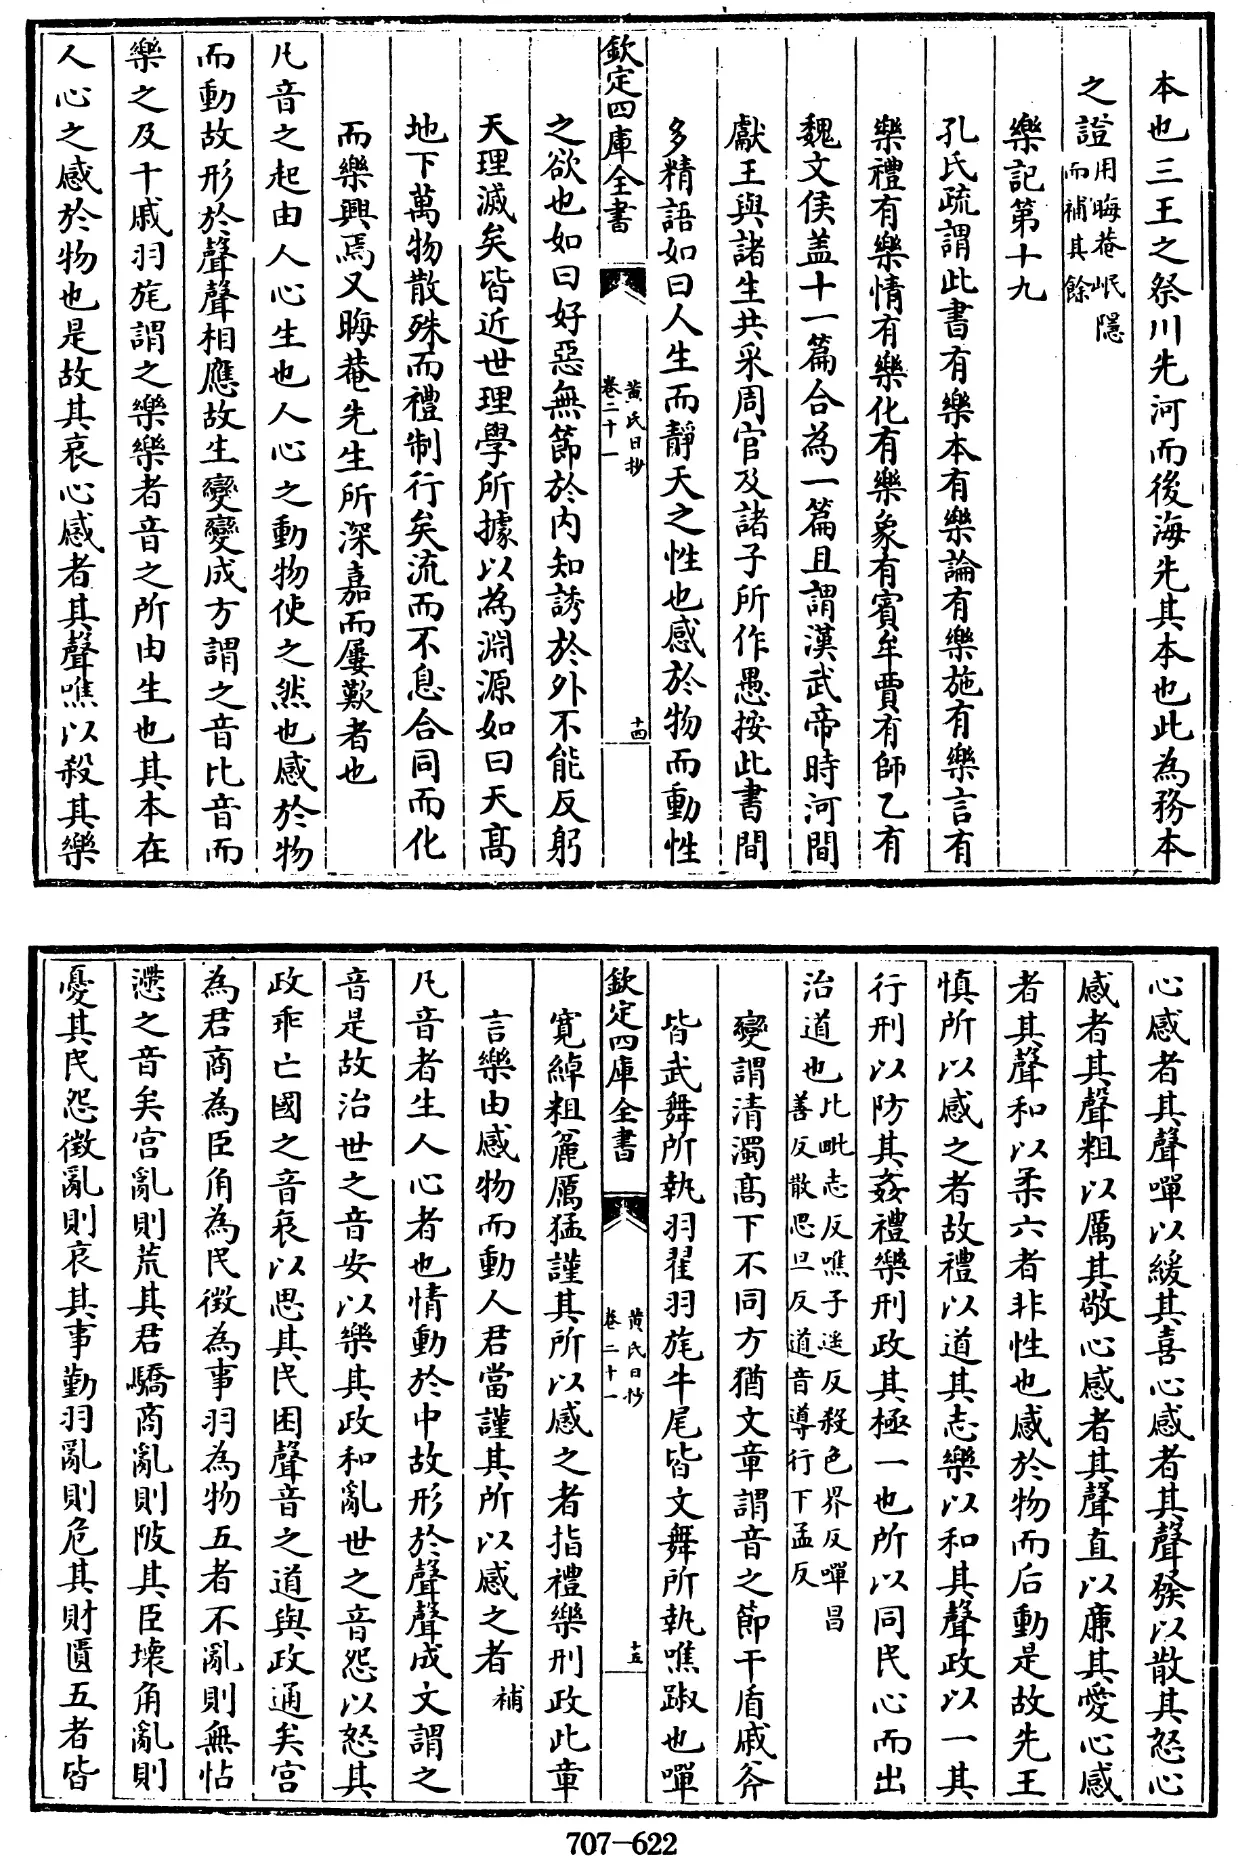 本也三王之祭川先河而後海先其本也此為務本
之證用晦菴岷隱
而補其餘
樂記第十九
孔氏疏謂此書有樂本有樂論有樂施有樂言有
樂禮有樂情有樂化有樂象有賓牟賈有師乙有
魏文侯盖十一篇合為一篇且謂漢武帝時河間
獻王與諸生共采周官及諸子所作愚按此書間
多精語如曰人生而靜天之性也感於物而動性
欽定四庫全書
黄氏日抄
卷二十一
十四
之欲也如曰好惡無節於內知誘於外不能反躬
天理滅矣皆近世理學所據以為淵源如曰天髙
地下萬物散殊而禮制行矣流而不息合同而化
而樂興焉又晦菴先生所深嘉而屢歎者也
凡音之起由人心生也人心之動物使之然也感於物
而動故形於聲聲相應故生變變成方謂之音比音而
樂之及干戚羽旄謂之樂樂者音之所由生也其本在
人心之感於物也是故其哀心感者其聲噍以殺其樂
心感者其聲嘽以緩其喜心感者其聲發以散其怒心
感者其聲粗以厲其敬心感者其聲直以廉其愛心感
者其聲和以柔六者非性也感於物而后動是故先王
慎所以感之者故禮以道其志樂以和其聲政以一其
行刑以防其姦禮樂刑政其極一也所以同民心而出
治道也比毗志反噍子遥反殺色界反嘽昌
善反散思旦反道音導行下孟反
變謂清濁髙下不同方猶文章謂音之節干盾戚斧
皆武舞所執羽翟羽旄牛尾皆文舞所執噍踧也嘽
欽定四庫全書
黄氏日抄
卷二十一
十五
寛綽粗麄厲猛謹其所以感之者指禮樂刑政此章
言樂由感物而動人君當謹其所以感之者補
凡音者生人心者也情動於中故形於聲聲成文謂之
音是故治世之音安以樂其政和亂世之音怨以怒其
政乖亡國之音哀以思其民困聲音之道與政通矣宮
為君商為臣角為民徵為事羽為物五者不亂則無怗
懘之音矣宮亂則荒其君驕商亂則陂其臣壞角亂則
憂其民怨徵亂則哀其事勤羽亂則危其財匱五者皆
707—622